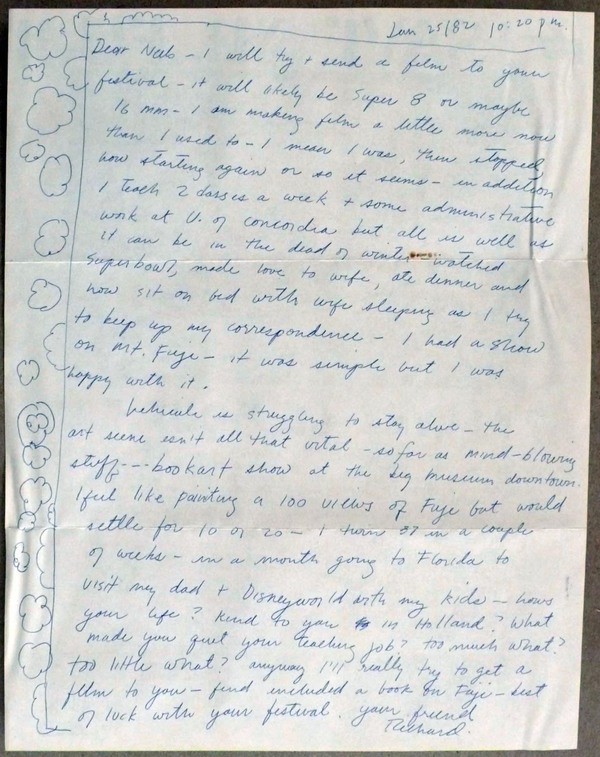 Jan 25/82 10:20 pm.
Dear Neils - I will try + send a film to your
festival - it will likely be Super 8 or maybe
16 mm - I am making film a little more now
than I used to - I mean I was, then stopped,
now starting again or so it seems - in addition
I teach 2 classes a week + some administrative
work at U. of Concordia but all is well as
it can be in the dead of winter watched
Superbowl, made love to wife, ate dinner and
now sit on bed with wife sleeping as I try
to keep up my correspondence - I had a show
on Mt. Fuji - it was simple but I was
happy with it.
Vehicule is struggling to stay alive - the
art scene isn't all that vital - so far as mind-blowing
stuff --- bookart show at the big museum downtown.
I feel like painting a 100 views of Fuji but would
settle for 10 or 20 - I turn 37 in a couple
of weeks - in a month going to Florida to
visit my dad + Disneyworld with my kids - hows
your life? Kind to you in Holland? What
made you quit your teaching job? too much what?
too little what? anyway I'll really try to get a
film to you - find included a book on Fuji - best
of luck with your festival. your friend
Richard.